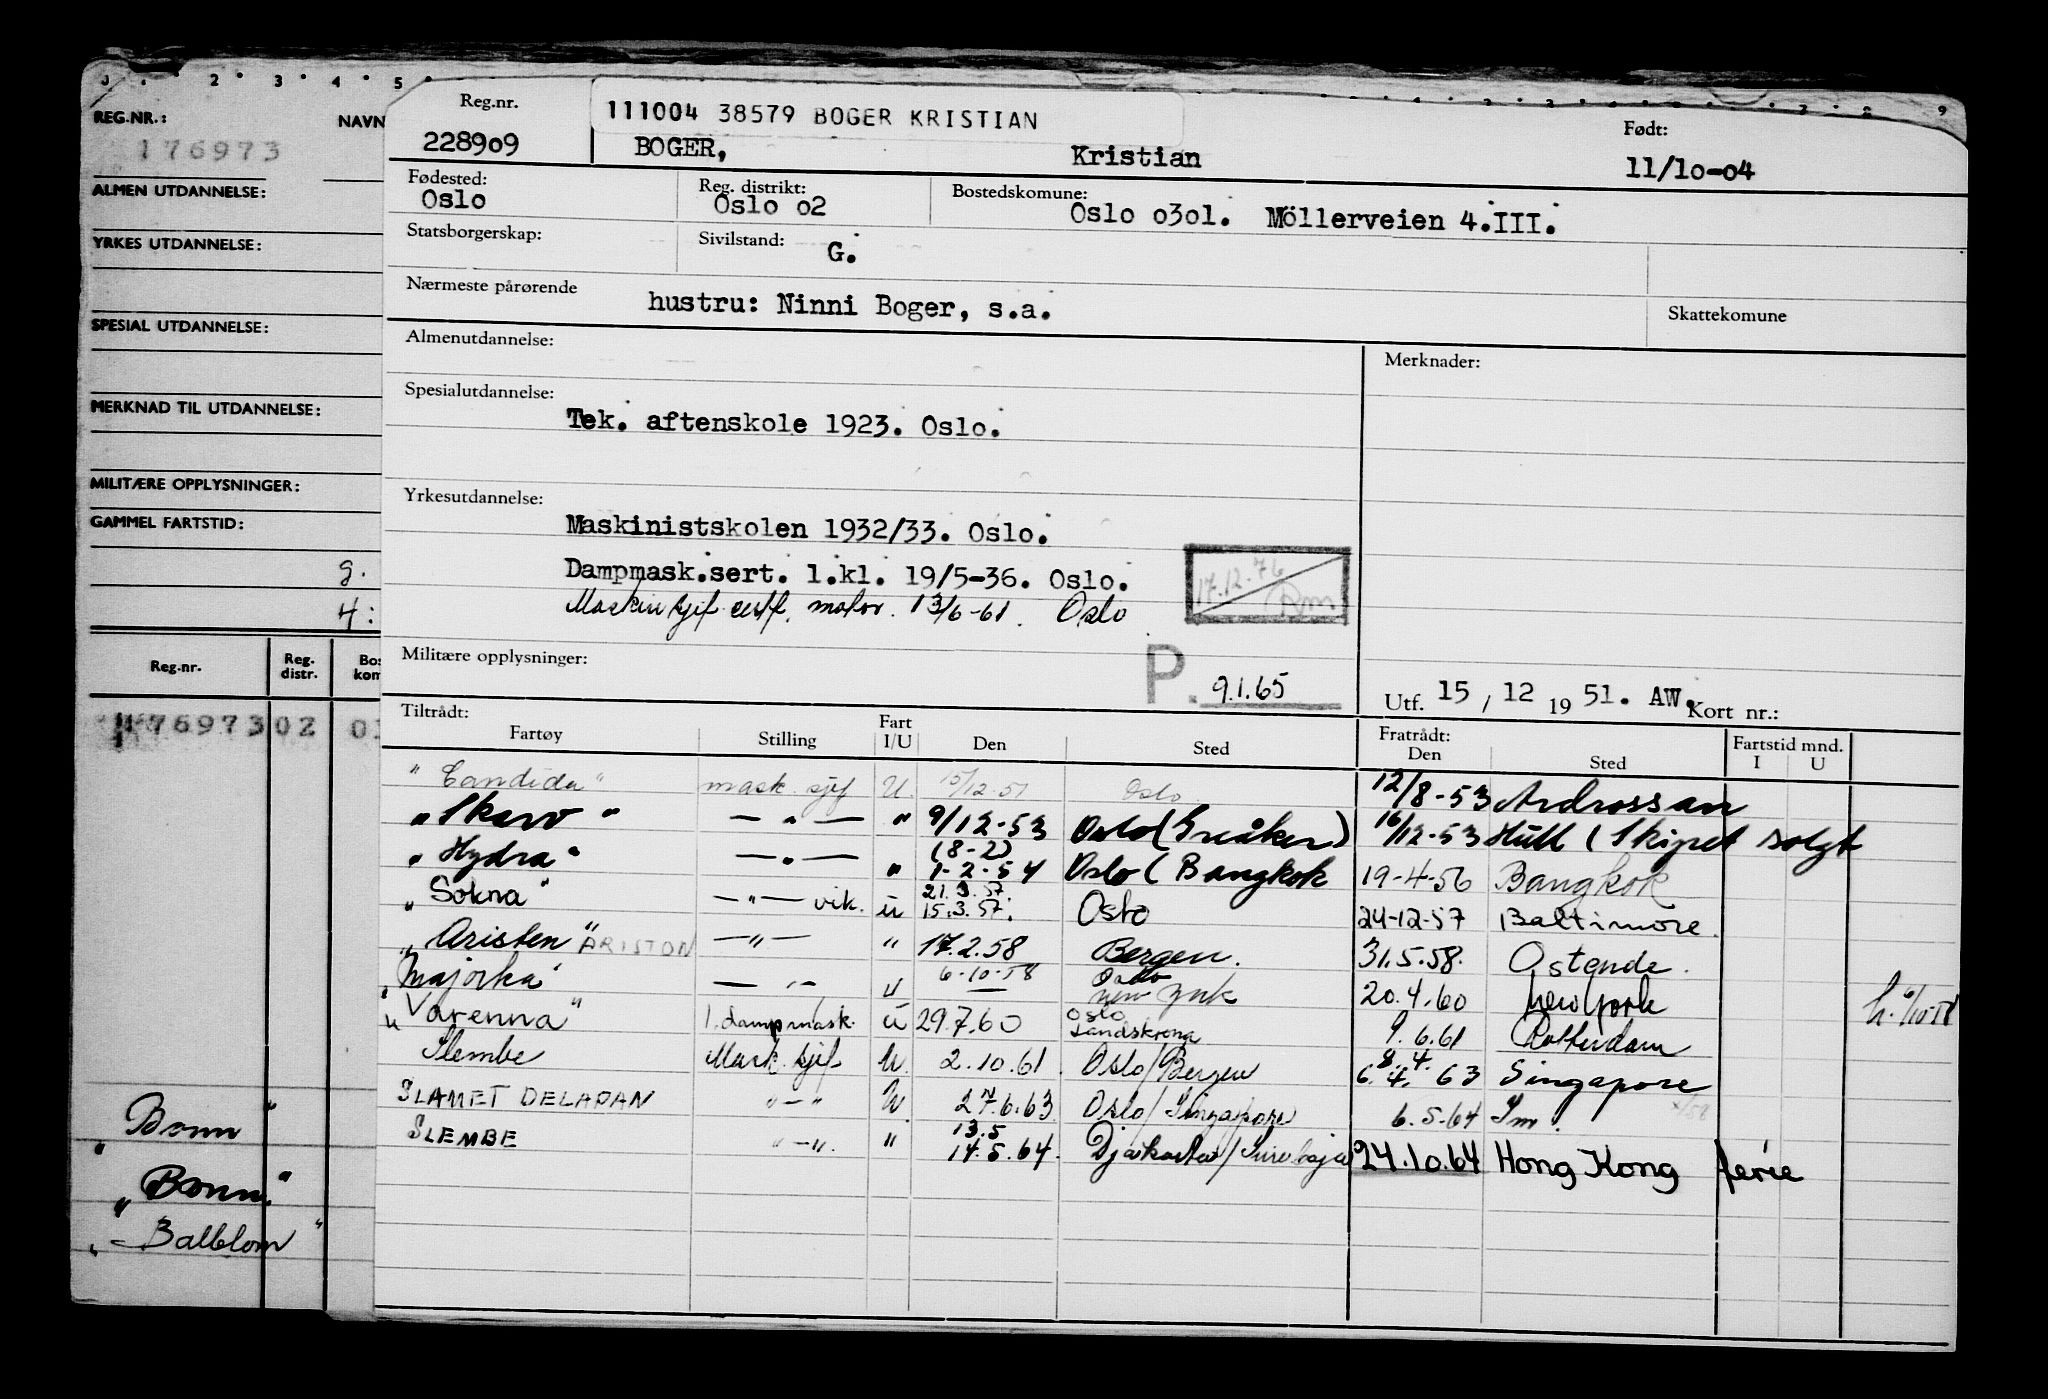 1 2 3 4 5
REG.NR.: NAVN
176973
ALMEN UTDANNELSE:
YRKES UTDANNELSE:
SPESIAL UTDANNELSE:
MERKNAD TIL UTDANNELSE:
MILITÆRE OPPLYSNINGER:
GAMMEL FARTSTID:
g.
4:
Reg.nr. Reg. distr. Bos kom
176973 02 03
"Bonn"
"Bonn"
"Balblom"
Reg.nr. 111004 38579 BOGER KRISTIAN Født:
228909 BOGER, Kristian 11/10-04
Fødested: Reg. distrikt: Bostedskomune:
Oslo Oslo 02 Oslo 0301. Möllerveien 4.III.
Statsborgerskap: Sivilstand: G.
Nærmeste pårørende hustru: Ninni Boger, s.a. Skattekomune
Almenutdannelse: Merknader:
Spesialutdannelse:
Tek. aftenskole 1923. Oslo.
Yrkesutdannelse:
Maskinistskolen 1932/33. Oslo.
Dampmask.sert. 1.kl. 19/5-36. Oslo.
Maskinsjef cert. motor. 13/6-61. Oslo
17.12.76
Militære opplysninger: P. 9.1.65
Utf. 15 / 12 19 51. AW. Kort nr.:
Tiltrådt: Fart Fratrådt: Fartstid mnd.
Fartøy Stilling I/U Den Sted Den Sted I U
"Candida" mask. sjef U. 15/12.51 Oslo 12/8-53 Ardrossan
"Skaro" — " — " 9/12-53 Oslo (Greåker) 16/12-53 Hull (Skipet solgt
"Hydra" — " — " (8-2) 1-2-54 Oslo (Bangkok 19-4-56 Bangkok
"Sokna" — " — vik. u 21.3.57. 15.3.57. Oslo 24-12-57 Baltimore.
"Aristen" ARISTON — " — " 17.2.58 Bergen. 31.5.58. Ostende.
"Majorka" — " — u 6-10-58 Oslo New York 20.4.60 New York
"Varenna" 1. damp mask. u 29.7.60 Oslo Landskrona 9.6.61 Rotterdam
Slembe Mask. sjef U. 2.10.61 Oslo/Bergen 8.4. 6.4. 63 Singapore
SLAMET DELAPAN " — " U. 27.6.63 Oslo/Singapore 6.5.64 Sm.
SLEMBE " — " " 13.5 14.5.64. Djakarta/Surabaja 24.10.64 Hong Kong ferie